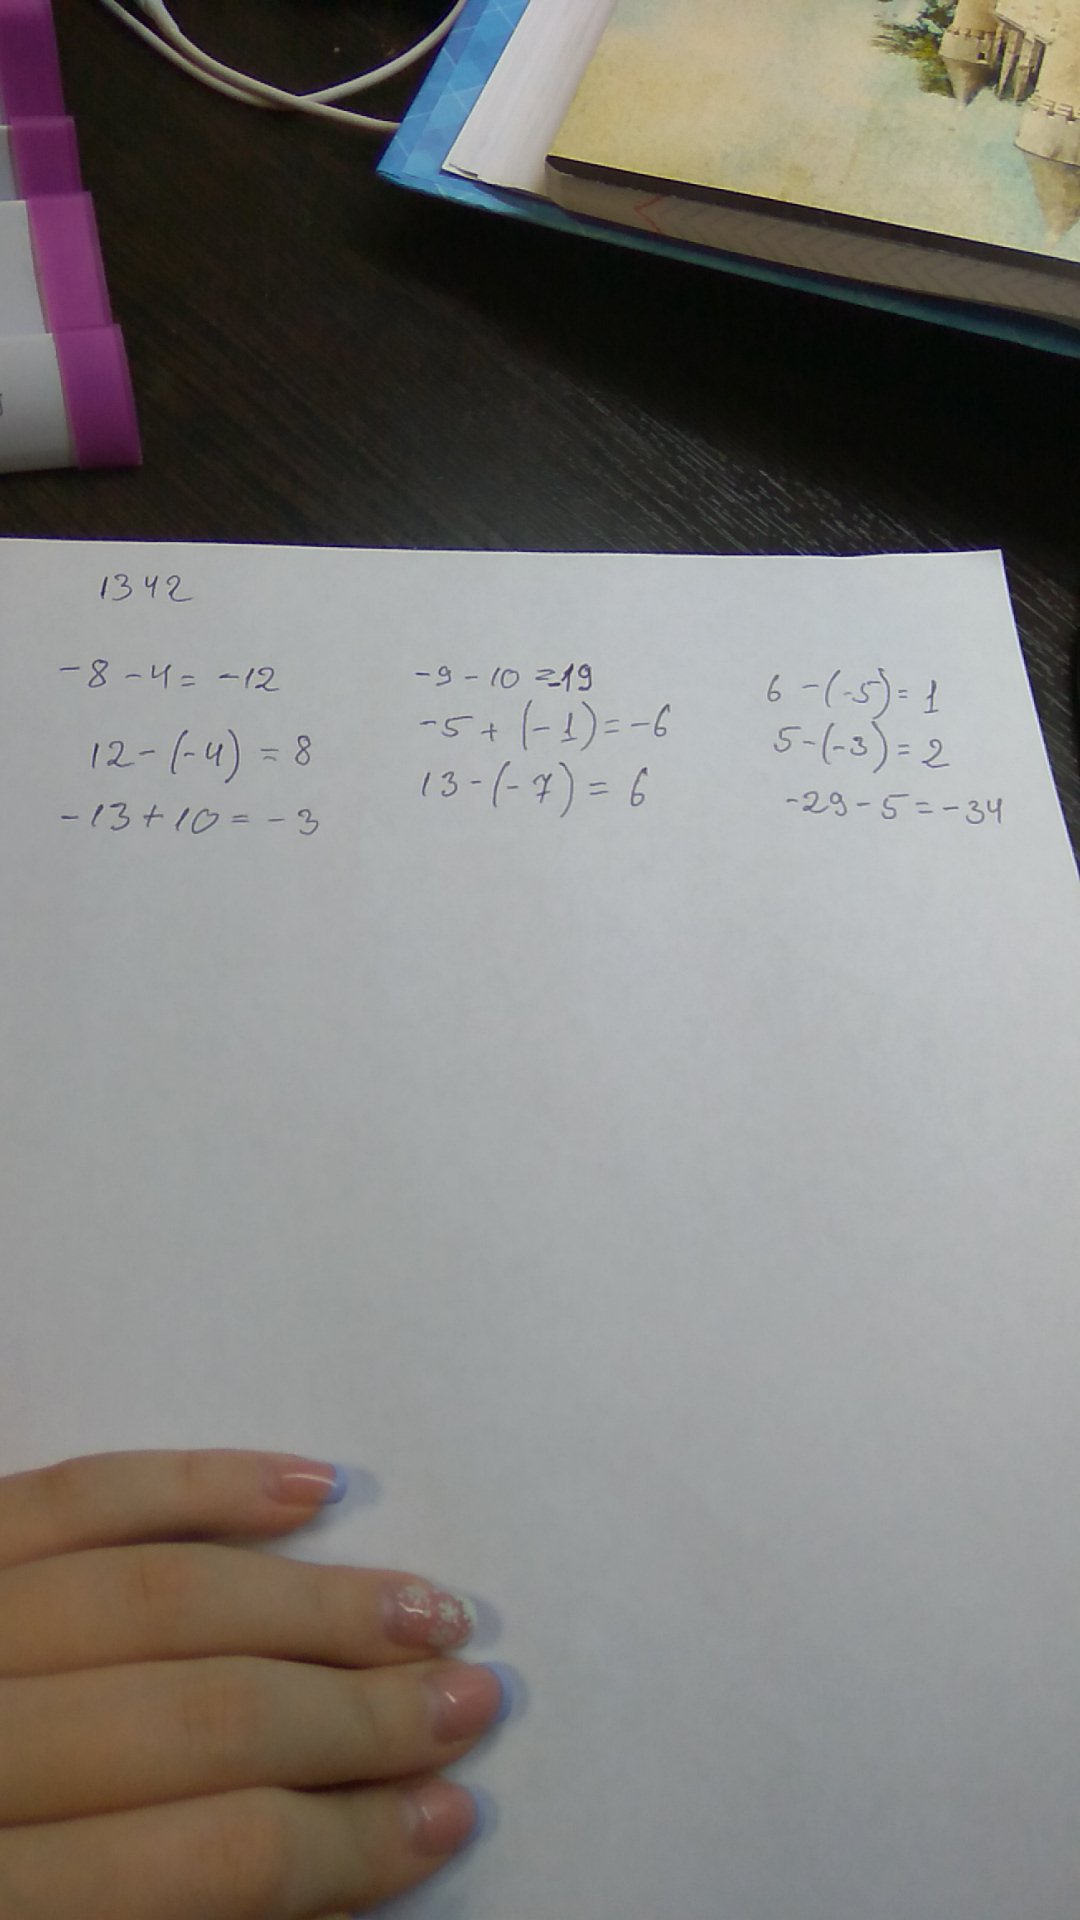 1342
-8 - 4 = -12
12 - (-4) = 8
-13 + 10 = -3
-9 - 10 = -19
-5 + (-1) = -6
13 - (-7) = 6
6 - (-5) = 1
5 - (-3) = 2
-29 - 5 = -34